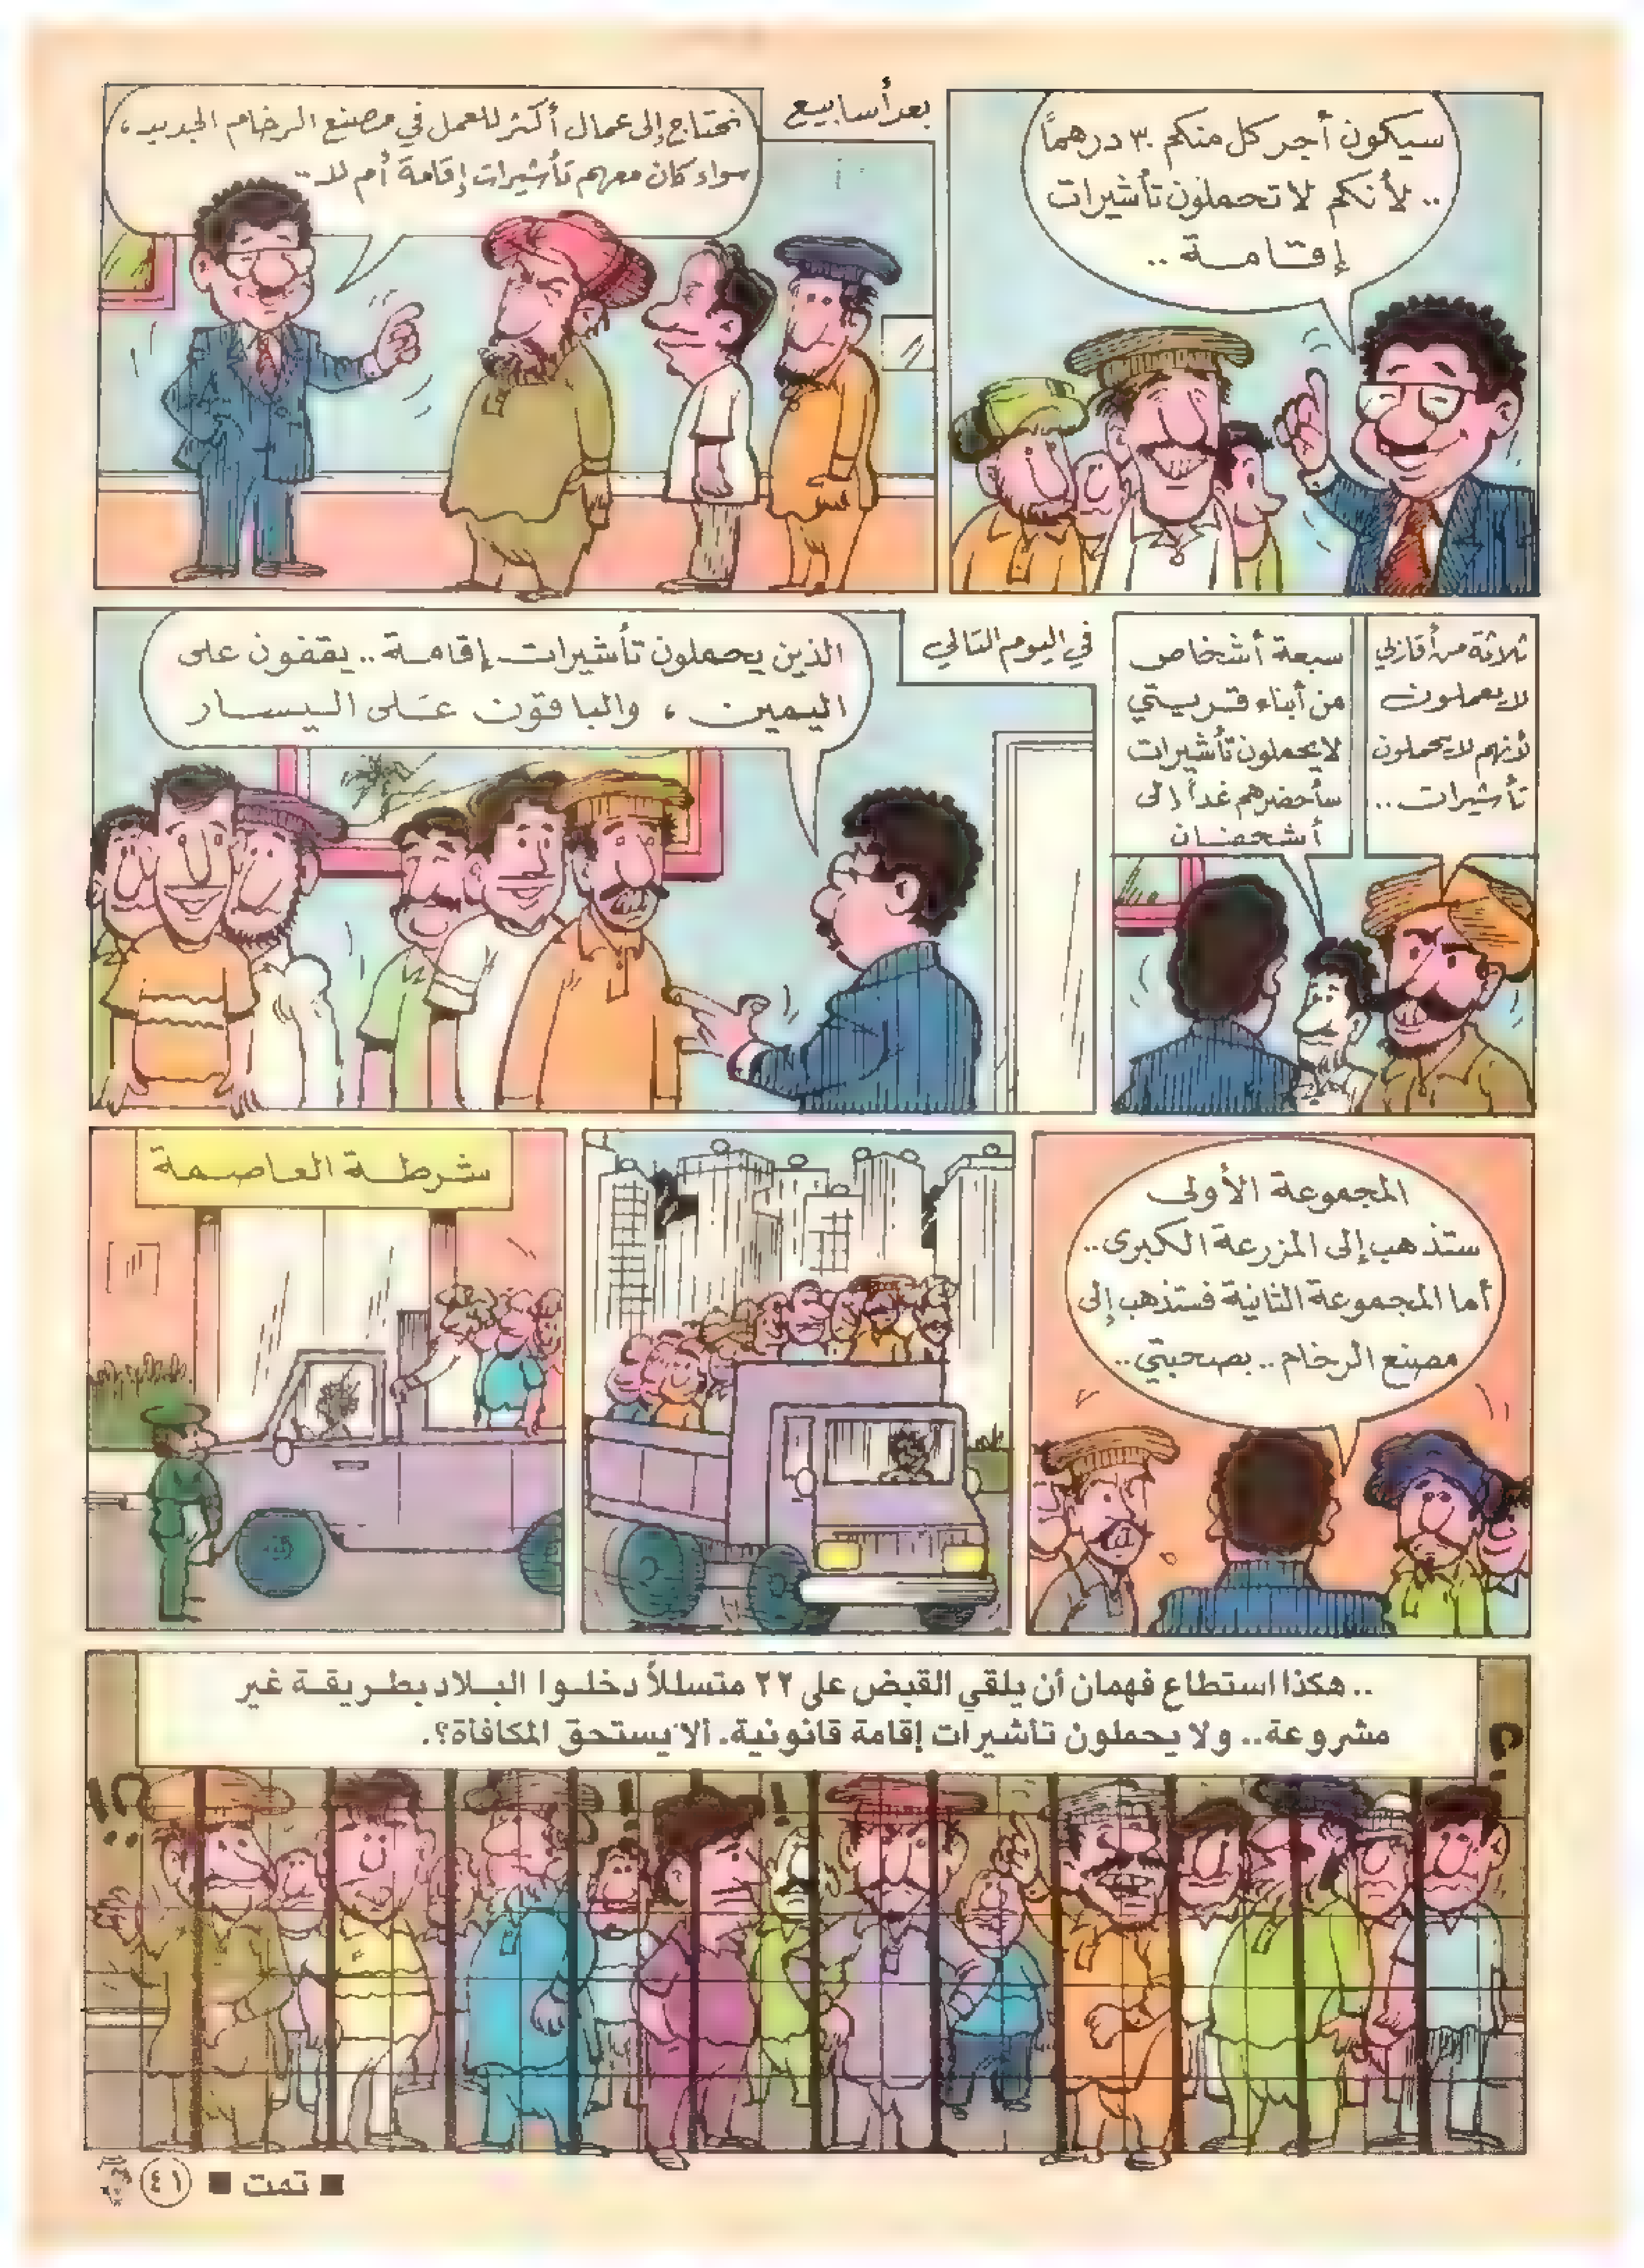 سيكون أجر كل منكم ٣٠ درهماً
.. لأنكم لا تحملون تأشيرات
إقامة ..
بعد أسابيع
نحتاج إلى عمال أكثر للعمل في مصنع الرخام الجديد ،
سواء كان معهم تأشيرات إقامة أم لا ..
ثلاثة من أقاربي
لا يعملون
لأنهم لا يحملون
تأشيرات ..
سبعة أشخاص
من أبناء قريتي
لا يحملون تأشيرات
سأحضرهم غداً إلى
في اليوم التالي
الذين يحملون تأشيرات إقامة .. يقفون على
اليمين ، والباقون على اليسار
المجموعة الأولى
ستذهب إلى المزرعة الكبرى ..
أما المجموعة الثانية فستذهب إلى
مصنع الرخام .. بصحبتي ..
شرطة العاصمة
.. هكذا استطاع فهمان أن يلقي القبض على ٢٢ متسللاً دخلوا البلاد بطريقة غير
مشروعة .. ولا يحملون تأشيرات إقامة قانونية. ألا يستحق المكافأة؟.
؟!
!
!
؟
■ تمت ■ ٤١